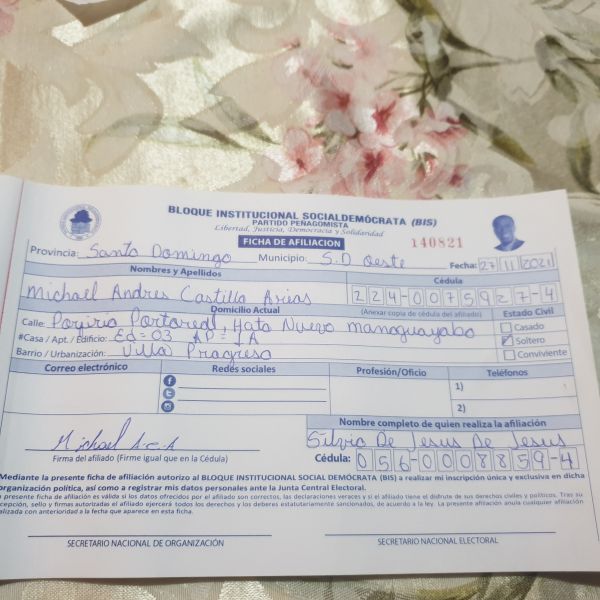 BLOQUE INSTITUCIONAL SOCIALDEMÓCRATA (BIS)
PARTIDO PEÑAGOMISTA
Libertad, Justicia, Democracia y Solidaridad
FICHA DE AFILIACION
140821
Provincia: Santo Domingo Municipio: S.D oeste Fecha: 27 11 2021
Nombres y Apellidos Cédula
Michael Andres Castillo Arias 224-0075927-4
Domicilio Actual (Anexar copia de cédula del afiliado) Estado Civil
Calle: Poririo Portareal, Hato Nuevo manoguayabo Casado
#Casa / Apt. / Edificio: Ed = 03 AP = 1A Soltero
Barrio / Urbanización: Villa Progreso Conviviente
Correo electrónico Redes sociales Profesión/Oficio Teléfonos
1)
2)
Nombre completo de quien realiza la afiliación
Michael A.C.A Silvio De Jesus De Jesus
Firma del afiliado (Firme igual que en la Cédula) Cédula: 056-0008859-4
Mediante la presente ficha de afiliación autorizo al BLOQUE INSTITUCIONAL SOCIAL DEMÓCRATA (BIS) a realizar mi inscripción única y exclusiva en dicha
organización política, así como a registrar mis datos personales ante la Junta Central Electoral.
presente ficha de afiliación es válida si los datos ofrecidos por el afiliado son correctos, las declaraciones veraces y si el afiliado tiene el disfrute de sus derechos civiles y políticos. Tras su
cepción, sello y firmas autorizadas el afiliado ejercerá todos los derechos y los deberes estatutariamente sancionados, de acuerdo a la ley. La presente afiliación anula cualquier afiliación
alizada con anterioridad a la fecha que aparece en esta ficha.
SECRETARIO NACIONAL DE ORGANIZACIÓN SECRETARIO NACIONAL ELECTORAL